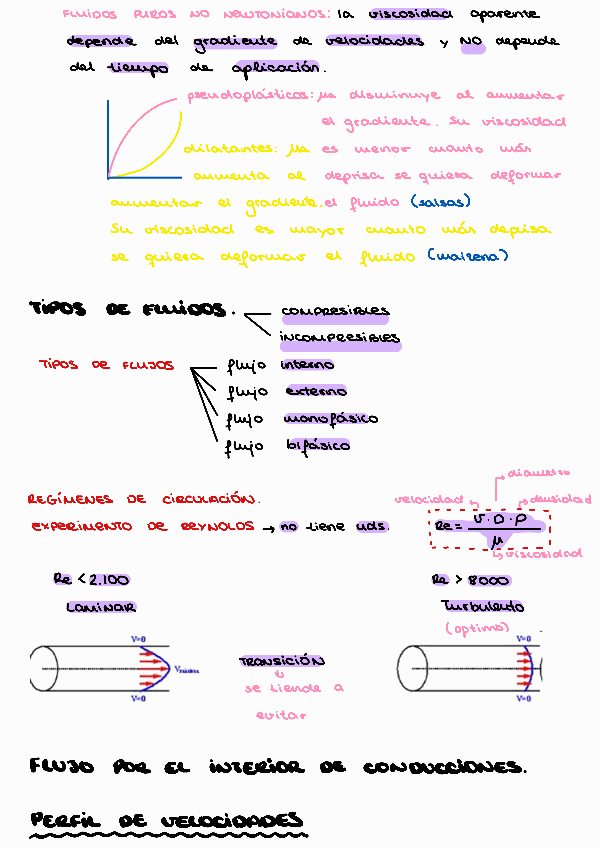 FLUIDOS PUROS NO NEWTONIANOS: la viscosidad aparente
depende del gradiente de velocidades y NO depende
del tiempo de aplicación.
pseudoplásticos: μa disminuye al aumentar
el gradiente. Su viscosidad
dilatantes: μa es menor cuanto más
aumenta al deprisa se quiera deformar
aumentar el gradiente. el fluido (salsas)
Su viscosidad es mayor cuanto más depisa
se quiera deformar el fluido (maizena)
TIPOS DE FLUIDOS. COMPRESIBLES
INCOMPRESIBLES
TIPOS DE FLUJOS flujo interno
flujo externo
flujo monofásico
flujo bifásico
REGÍMENES DE CIRCULACIÓN.
EXPERIMENTO DE REYNOLDS → no tiene uds.
diametro
velocidad densidad
Re = v · D · ρ / μ
viscosidad
Re < 2.100 Re > 8000
LAMINAR Turbulento
(optimo)
V=0 V=0
TRANSICIÓN
Vmáxima
se tiende a
V=0 V=0
evitar
FLUJO POR EL INTERIOR DE CONDUCCIONES.
PERFIL DE VELOCIDADES